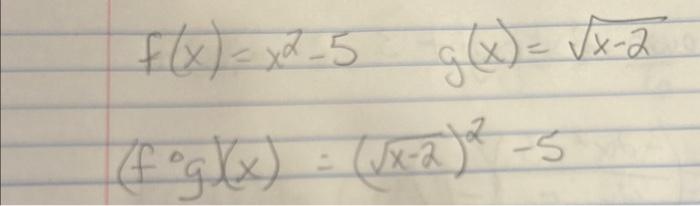 f(x) = x² - 5 g(x) = √(x-2)
(f∘g)(x) = (√(x-2))² - 5